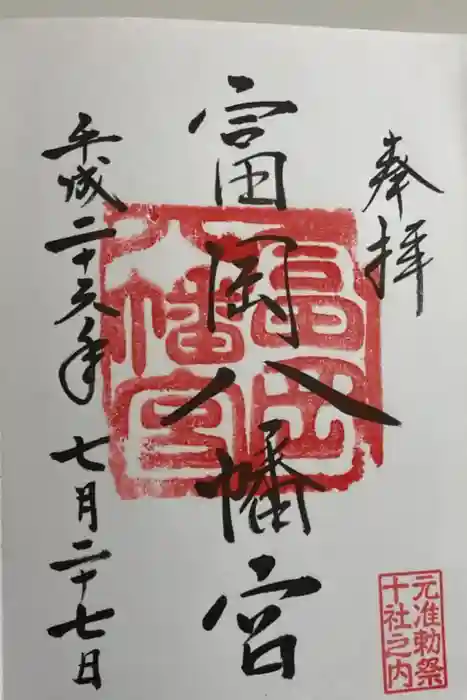 奉拝
元准勅祭
十社之内
富岡八幡宮
富岡
八幡宮
平成二十六年七月二十七日